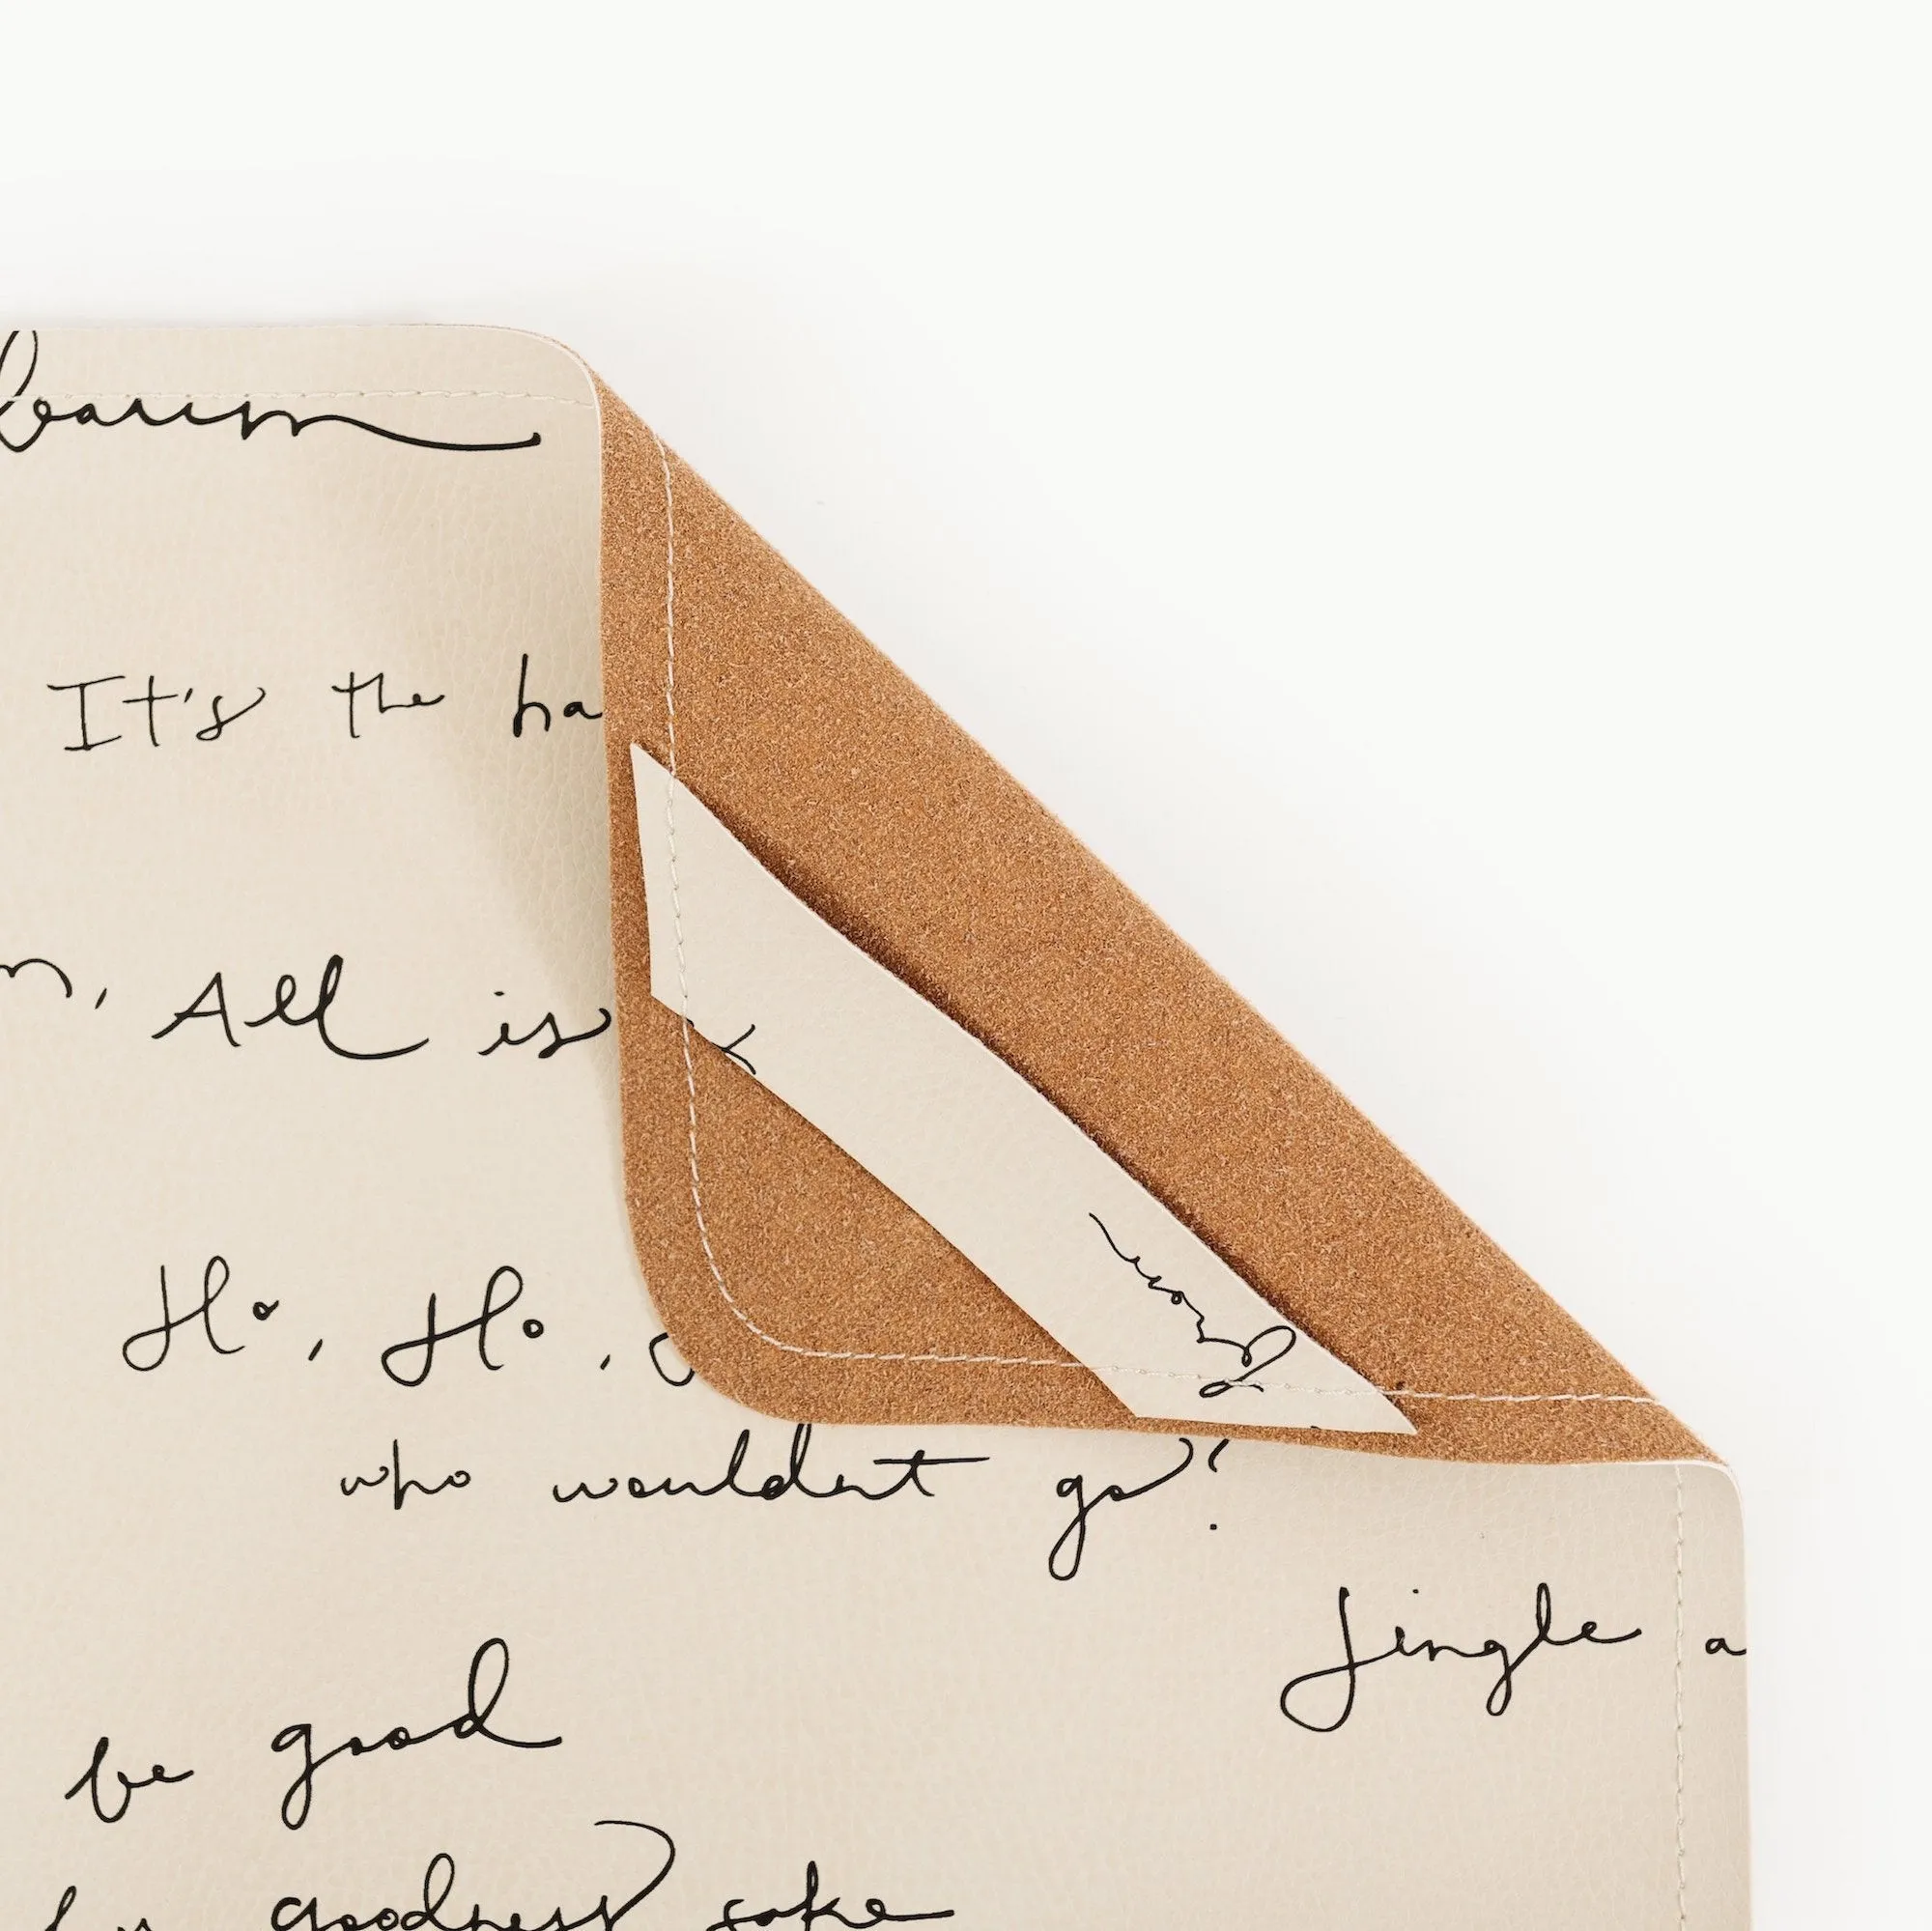 baum
It's the ha
All is
Ho, Ho,
who wouldn't go?
Jingle a
be good
goodness sake